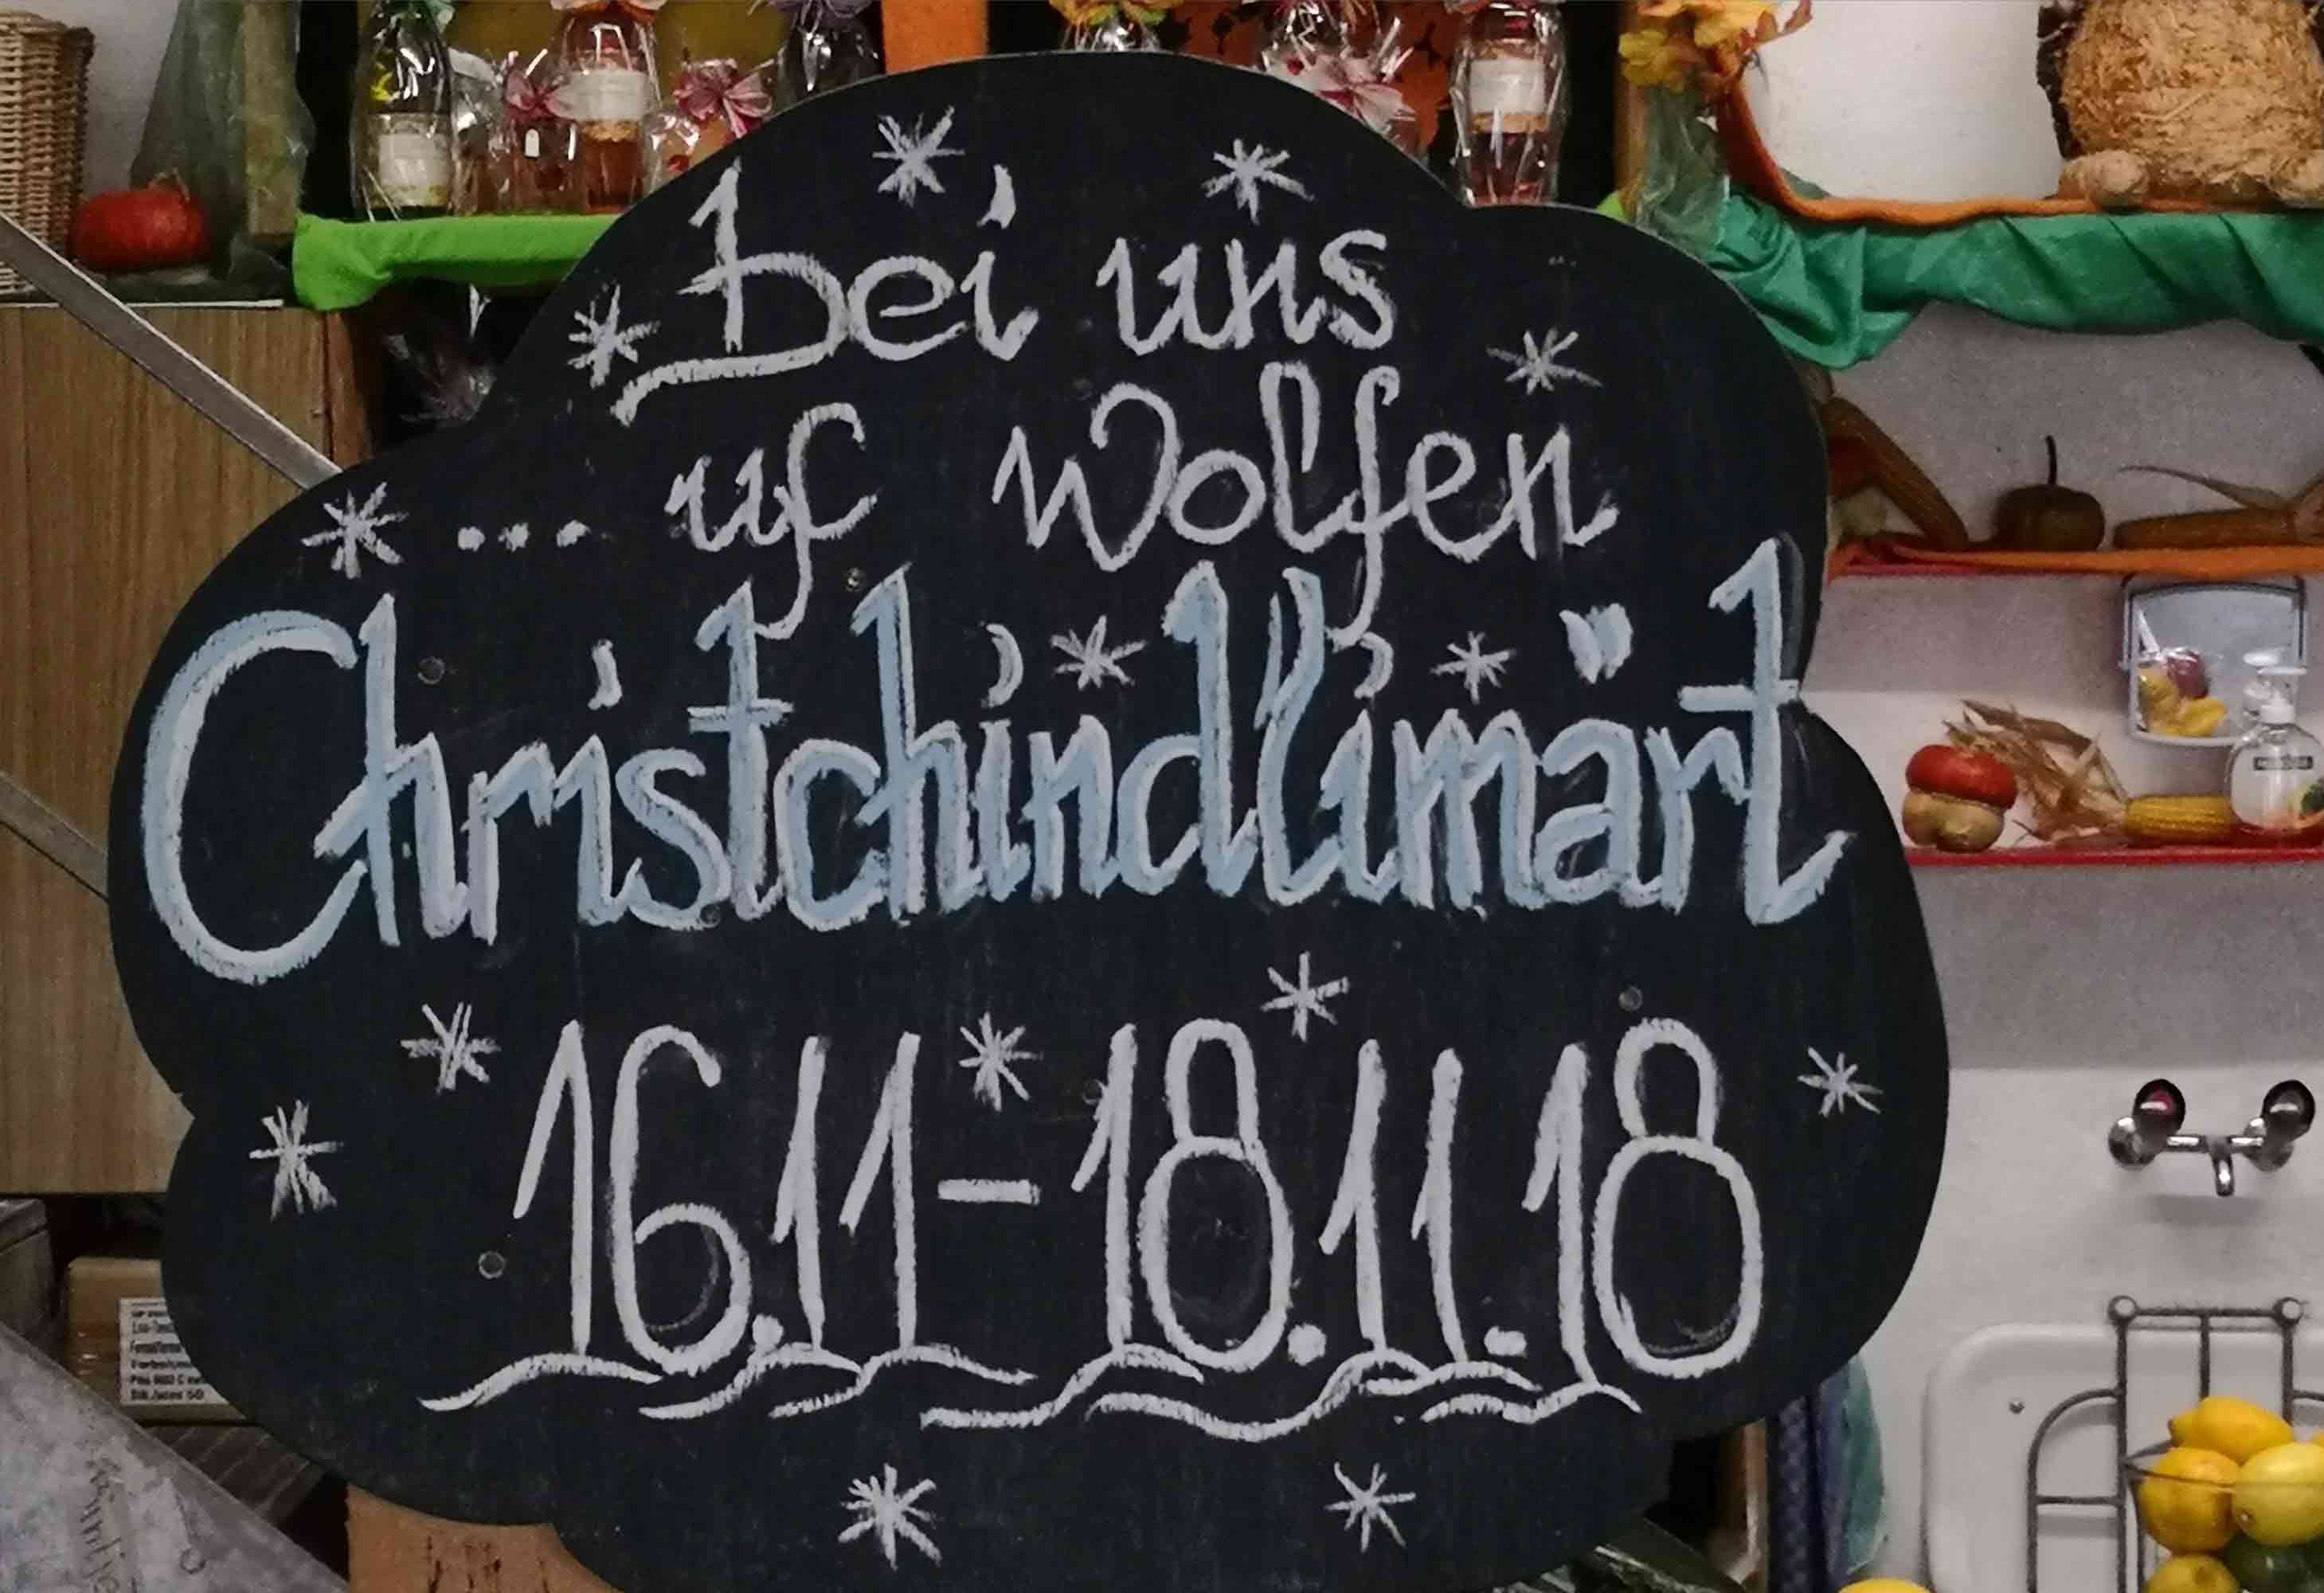 bei uns
... uf Wolfen
Christchindlimärt
16.11-18.11.18